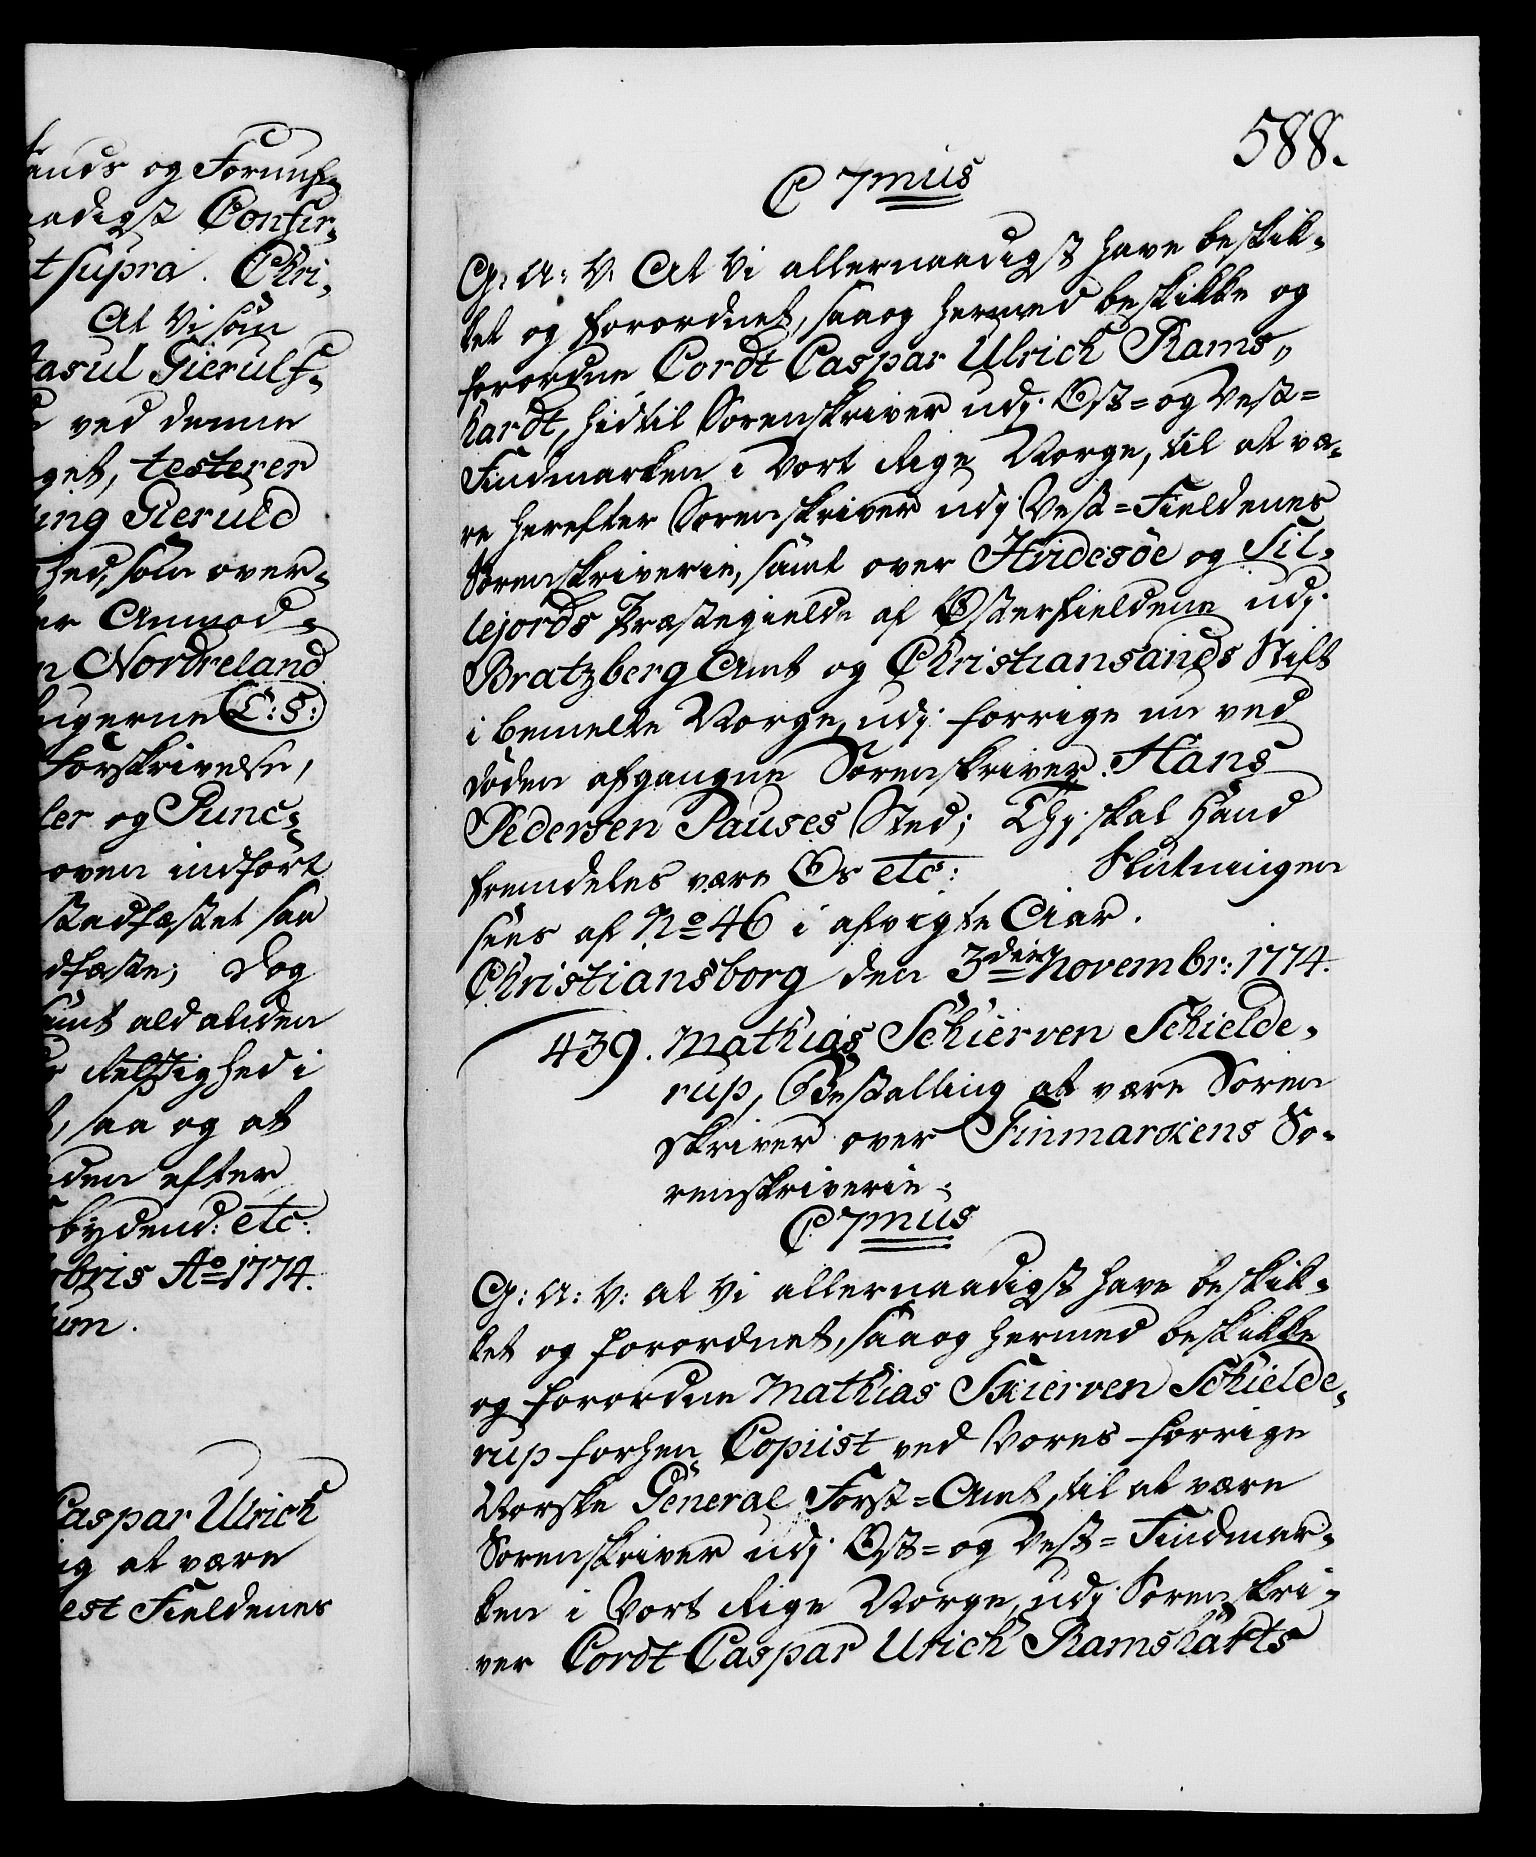 ands og Fornuf-
aadigst Confir-
t supra. Chri,
At Vi som
tasul Gierulf-
ved denne
get, testerer
ing Gieruld
hed, som over-
er Anmod-
n Nordreland
ugerne L: S:
forskrivelse,
ler og Punc-
oven indført
stadfæstet saa
dfæste; Dog
samt ald anden
Rettighed i
saa og at
den efter
bydend: etc:
bris Ao 1774.
um.
Caspar Ulrich
ng at være
est Fieldenes
588.
C 7mus
G: A: V: At Vi allernaadigst have beskik-
ket og forordnet, saa og hermed beskikke og
forordne Cordt Caspar Ulrich Rams,,
hardt, hidtil Sorenskriver udj Øst- og Vest-
Findmarken i Vort Rige Norge, til at væ-
re herefter Sorenskriver udj Vest-Fieldenes
Sorenskriverie, samt over Hvidesøe og Sil-
lejords Præstegielde af Østerfieldene udj
Bratzberg Amt og Christiansands Stift
i bemelte Norge, udj forrige nu ved
døden afgangne Sorenskriver Hans
Pedersen Pauses Sted; Thj skal Hand
fremdeles være Os etc: Slutningen
sees af No 46 i afvigte Aar.
Christiansborg den 3die Novembr: 1774.
439. Mathias Schierven Schielde-
rup, Bestalling at være Soren
skriver over Finmarkens So-
renskriverie.
C 7mus
G: A: V: At Vi allernaadigst have beskik-
ket og forordnet, saa og hermed beskikke
og forordne Mathias Skierven Schielde-
rup forhen Copiist ved Vores forrige
Norske General Forst-Amt, til at være
Sorenskriver udj Øst- og Vest-Findmar-
ken i Vort Rige Norge, udj Sorenskri-
ver Cordt Caspar Ulrich Ramsharts